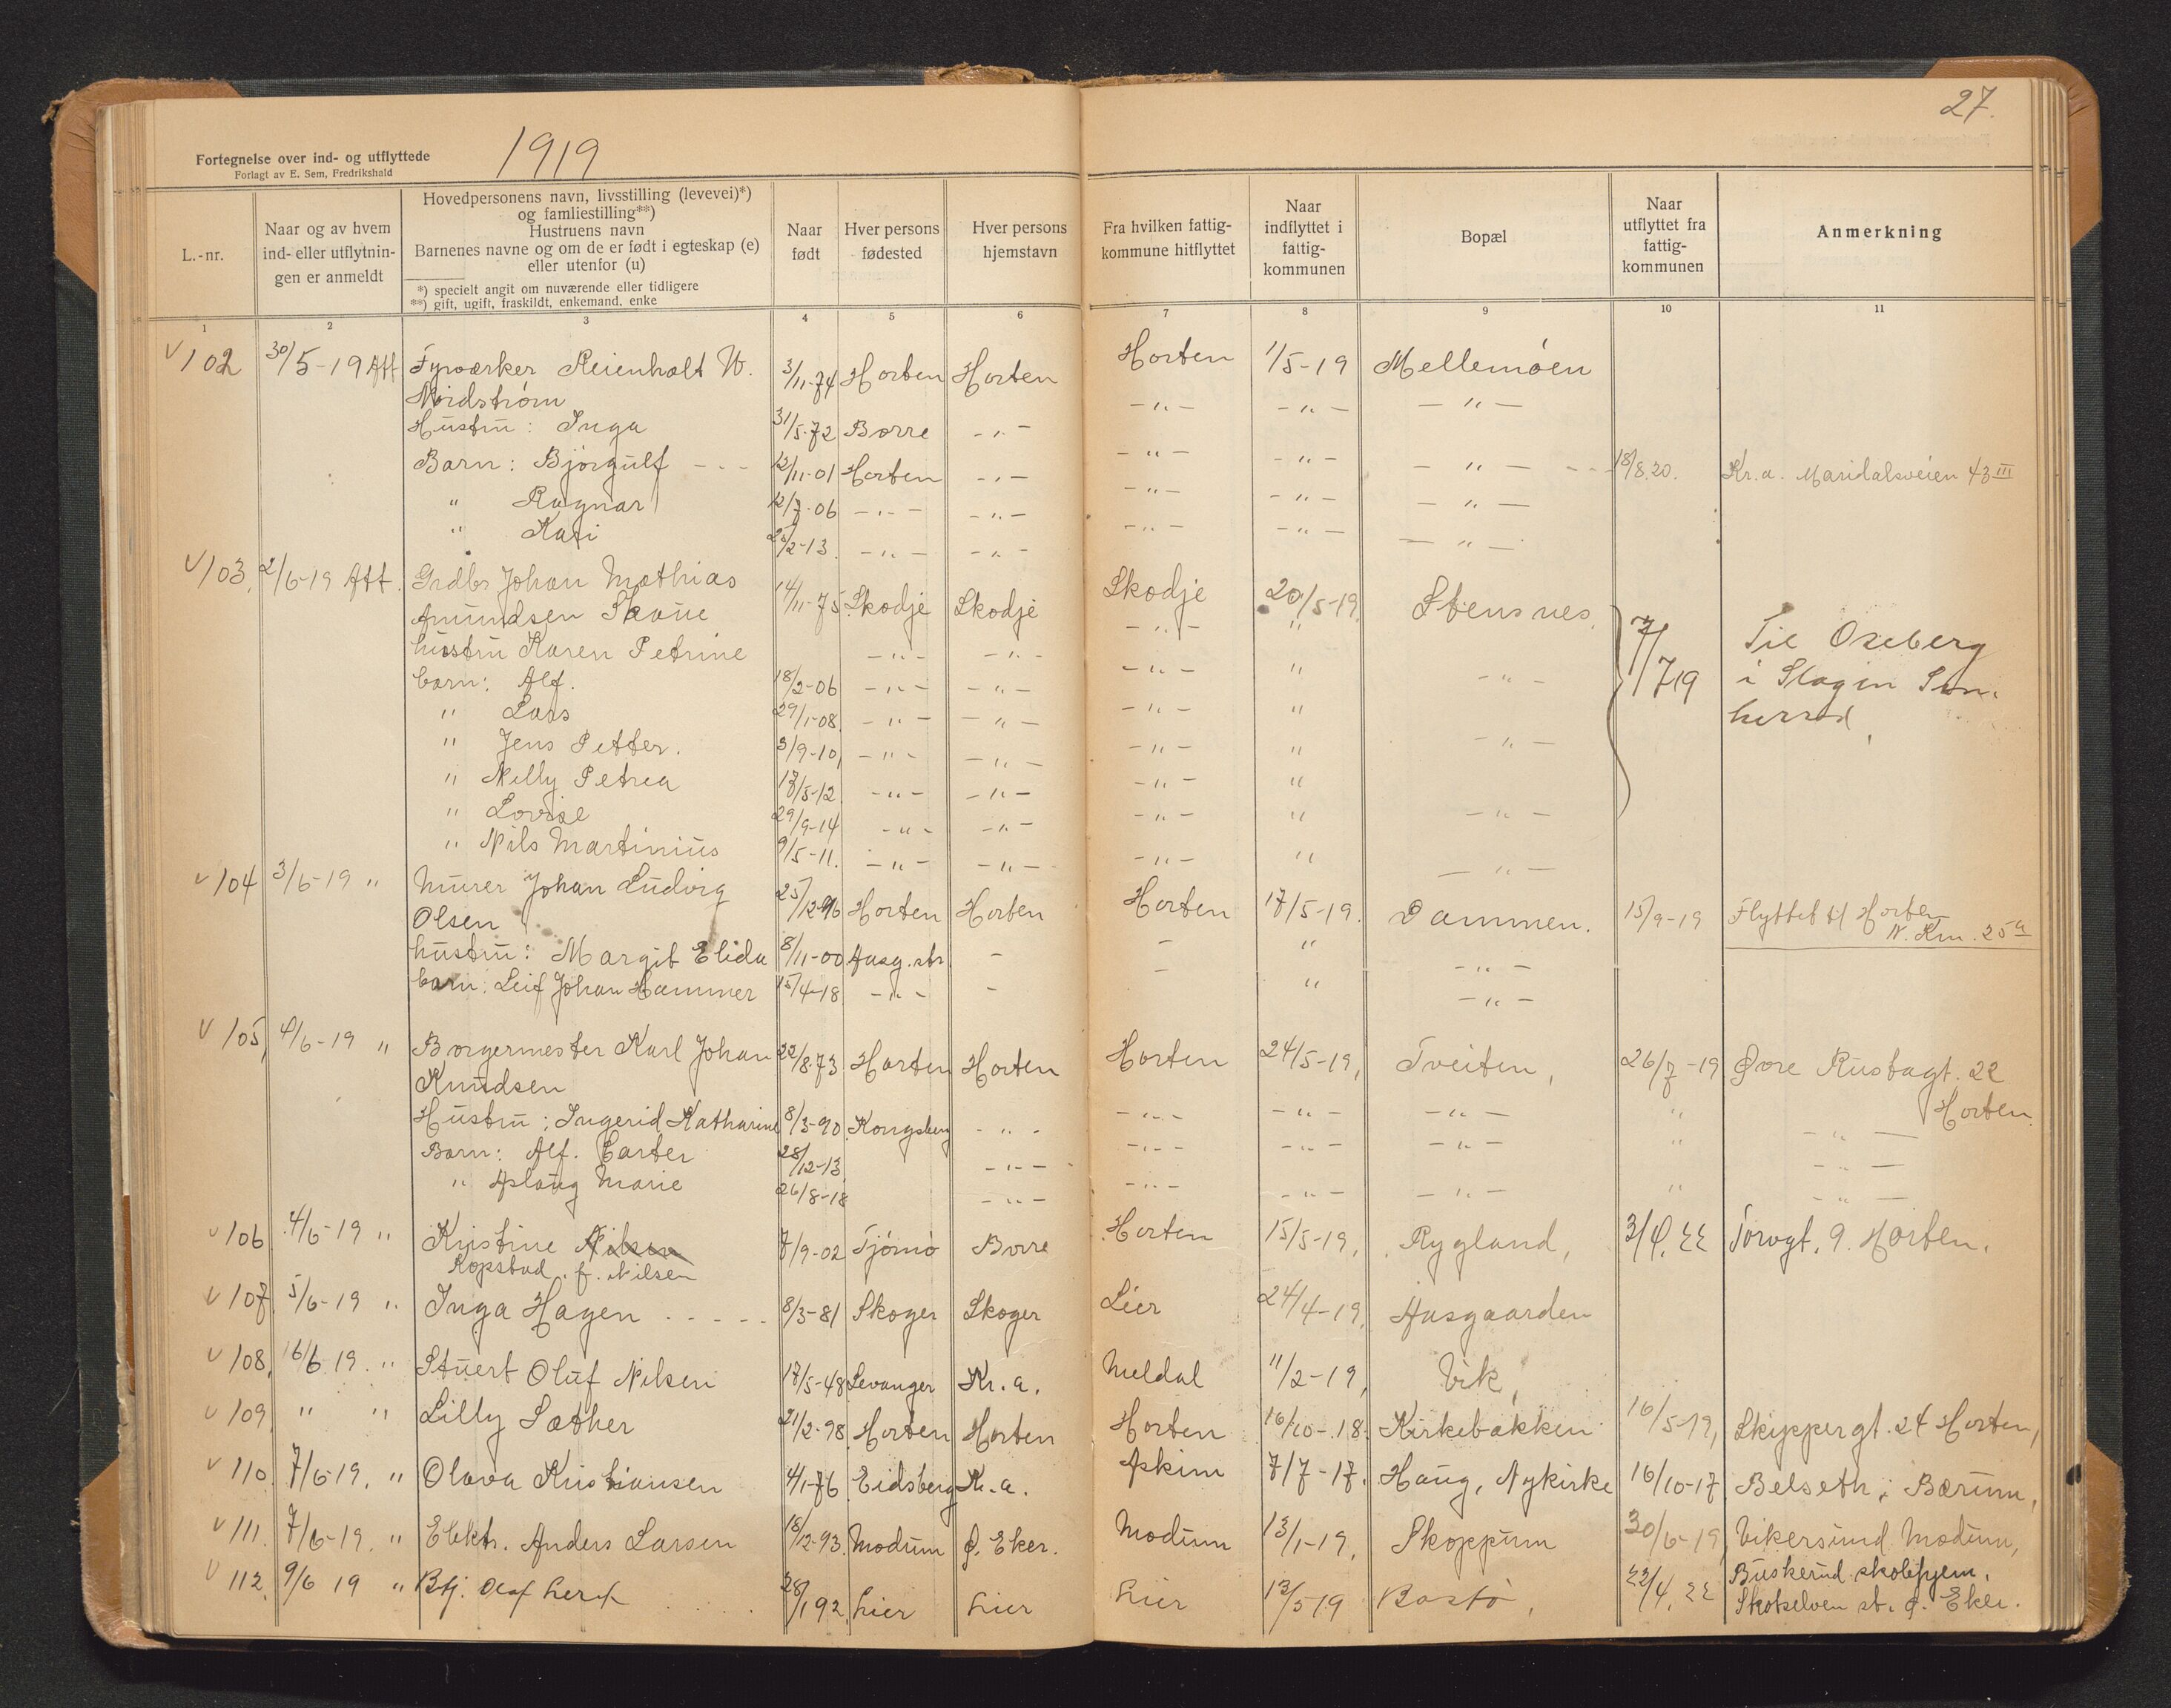 27.
1919
Fortegnelse over ind- og utflyttede
Forlagt av E. Sem, Fredrikshald
L.-nr.
Naar og av hvem ind- eller utflytnin- gen er anmeldt
Hovedpersonens navn, livsstilling (levevei)*)
og famliestilling**)
Hustruens navn
Barnenes navne og om de er født i egteskap (e)
eller utenfor (u)
*) specielt angit om nuværende eller tidligere
**) gift, ugift, fraskildt, enkemand, enke
Naar født
Hver persons fødested
Hver persons hjemstavn
Fra hvilken fattig- kommune hitflyttet
Naar indflyttet i fattig- kommunen
Bopæl
Naar utflyttet fra fattig- kommunen
Anmerkning
1 2 3 4 5 6 7 8 9 10 11
v 102 30/5-19 Att Fyrværker Reienholt W. 3/11-74 Horten Horten Horten 1/5-19 Mellemøen
Nordstrøm
Hustru: Inga 31/5-72 Borre -"- -"- -"- -"-
Barn: Bjørgulf - - - 12/11-01 Horten -"- -"- -"- -"- - - 18/8.20. Kr.a. Maridalsveien 43 III
" Ragnar 12/7-06 -"- -"- -"- -"- -"-
" Kari 25/2-13. -"- -"- -"- -"- -"-
v 103. 2/6-19 Att. Grdbr Johan Mathias 14/11-75 Skodje Skodje Skodje 20/5-19. Stensnes. 7/719 Til Oseberg
Amundsen Skaue i Slagen Sem
hustru Karen Petrine -"- -"- -"- " herred.
barn: Alf. 18/2-06 -"- -"- -"- " -"-
" Lars 29/1-08. -"- -"- -"- "
" Jens Petter. 3/9-10, -"- -"- -"- " -"-
" Nelly Petrea 17/5-12 -"- -"- -"- "
" Lovise 29/9-14 -"- -"- -"- " -"-
" Nils Martinius 9/5-11. -"- -"- -"- " -"-
v 104 3/6-19 " Murer Johan Ludvig 25/12-96 Horten Horten Horten 17/5-19. Dammen. 15/9-19 Flyttet til Horten
Olsen N. Km. 25a
hustru: Margit Elida 8/11-00. Aasg.str. - - " -"-
barn: Leif Johan Hammer 15/4-18 -"- - - " -"-
v 105, 4/6-19 " Borgermester Karl Johan 22/8.73 Horten Horten Horten 24/5-19, Tveiten, 26/7-19 Øvre Rustagt. 22
Knudsen Horten.
Hustru: Ingerid Katharine 8/3-90 Kongsberg -"- -"- -"- -"- " -"-
Barn: Alf. Carter 28/12-13. -"- -"- -"- -"- " -"-
" Aslaug Marie 26/8-18 -"- -"- -"- -"- " -"-
v 106 4/6-19 " Kristine Nilsen 7/9-02 Tjømø Borre Horten 15/5-19, Rygland, 3/4.22 Torvgt. 9. Horten.
Kopstad. f. Nilsen
v 107 5/6-19 " Inga Hagen . . . . . 8/3-81 Skoger Skoger Lier 24/4-19, Aasgaarden
v 108, 16/6 19. " Stuert Oluf Nilsen 17/5-48 Levanger Kr.a. Meldal 11/2-19, Vik,
v 109, " " Lilly Sæther 21/2-98. Horten Horten Horten 16/10-18. Kirkebakken 16/5-19, Skippergt. 24 Horten,
v 110. 7/6-19. " Olava Kristiansen 4/1-76 Eidsberg Kr.a. Askim 7/7-17. Haug, Nykirke 16/10-17 Belseth i Bærum,
v 111. 7/6-19. " Elektr. Anders Larsen 18/12-93. Modum Ø. Eker. Modum 13/1-19, Skoppum 30/6-19, Vikersund Modum,
v 112. 9/6 19 " Btj. Olaf 28/1 92. Lier Lier Lier 13/5 19 Bastø, 23/4.22 Buskerud skolehjem.
Skotselven st. Ø. Eker.